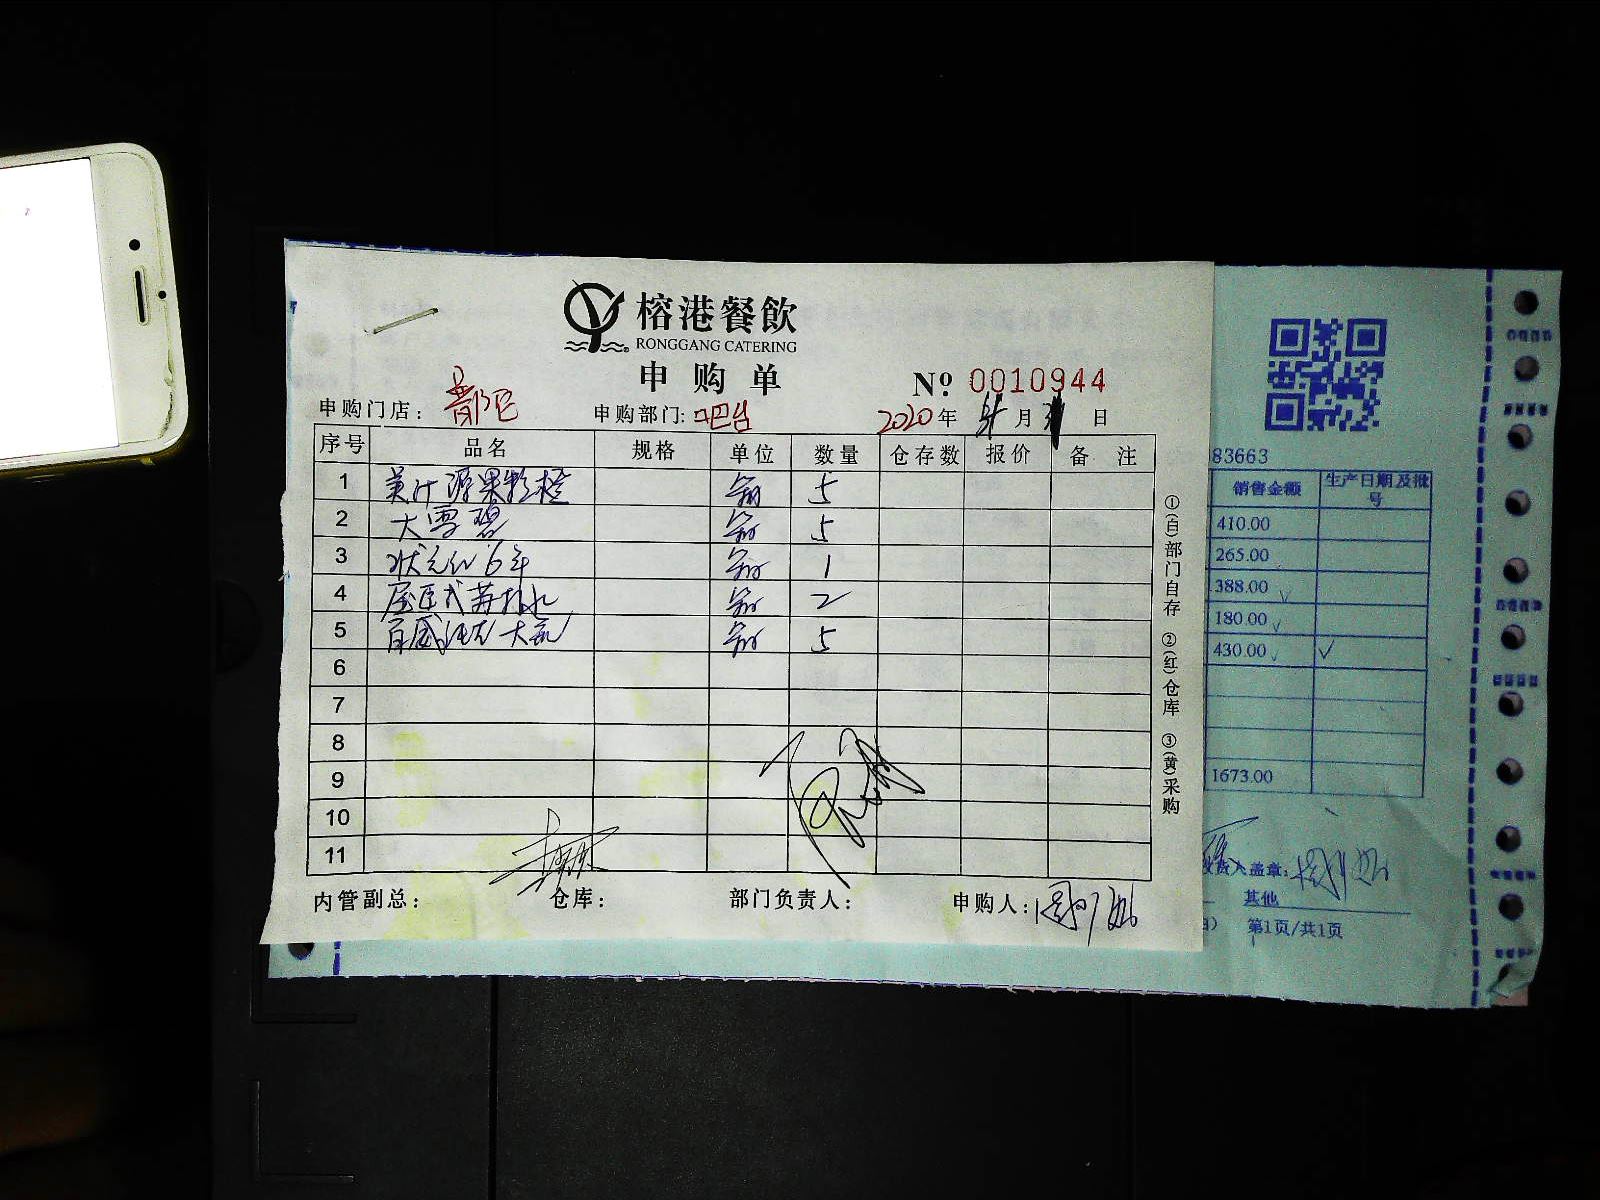 榕港餐飲
RONGGANG CATERING
申购单
№ 0010944
申购门店： 申购部门: 吧台 2020 年 月 日
序号 品名 规格 单位 数量 仓存数 报价 备 注
1 美汁源果粒橙 箱 5
2 大雪碧 箱 5
3 状元红6年 箱 1
4 屈臣式苏打水 箱 2
5 百威纯生大瓶 箱 5
6
7
8
9
10
11
内管副总： 仓库： 部门负责人： 申购人:
①(白)部门自存 ②(红)仓库 ③(黄)采购
83663
销售金额 生产日期及批号
410.00
265.00
388.00
180.00
430.00 ✓
1673.00
盖章:
其他
第1页/共1页